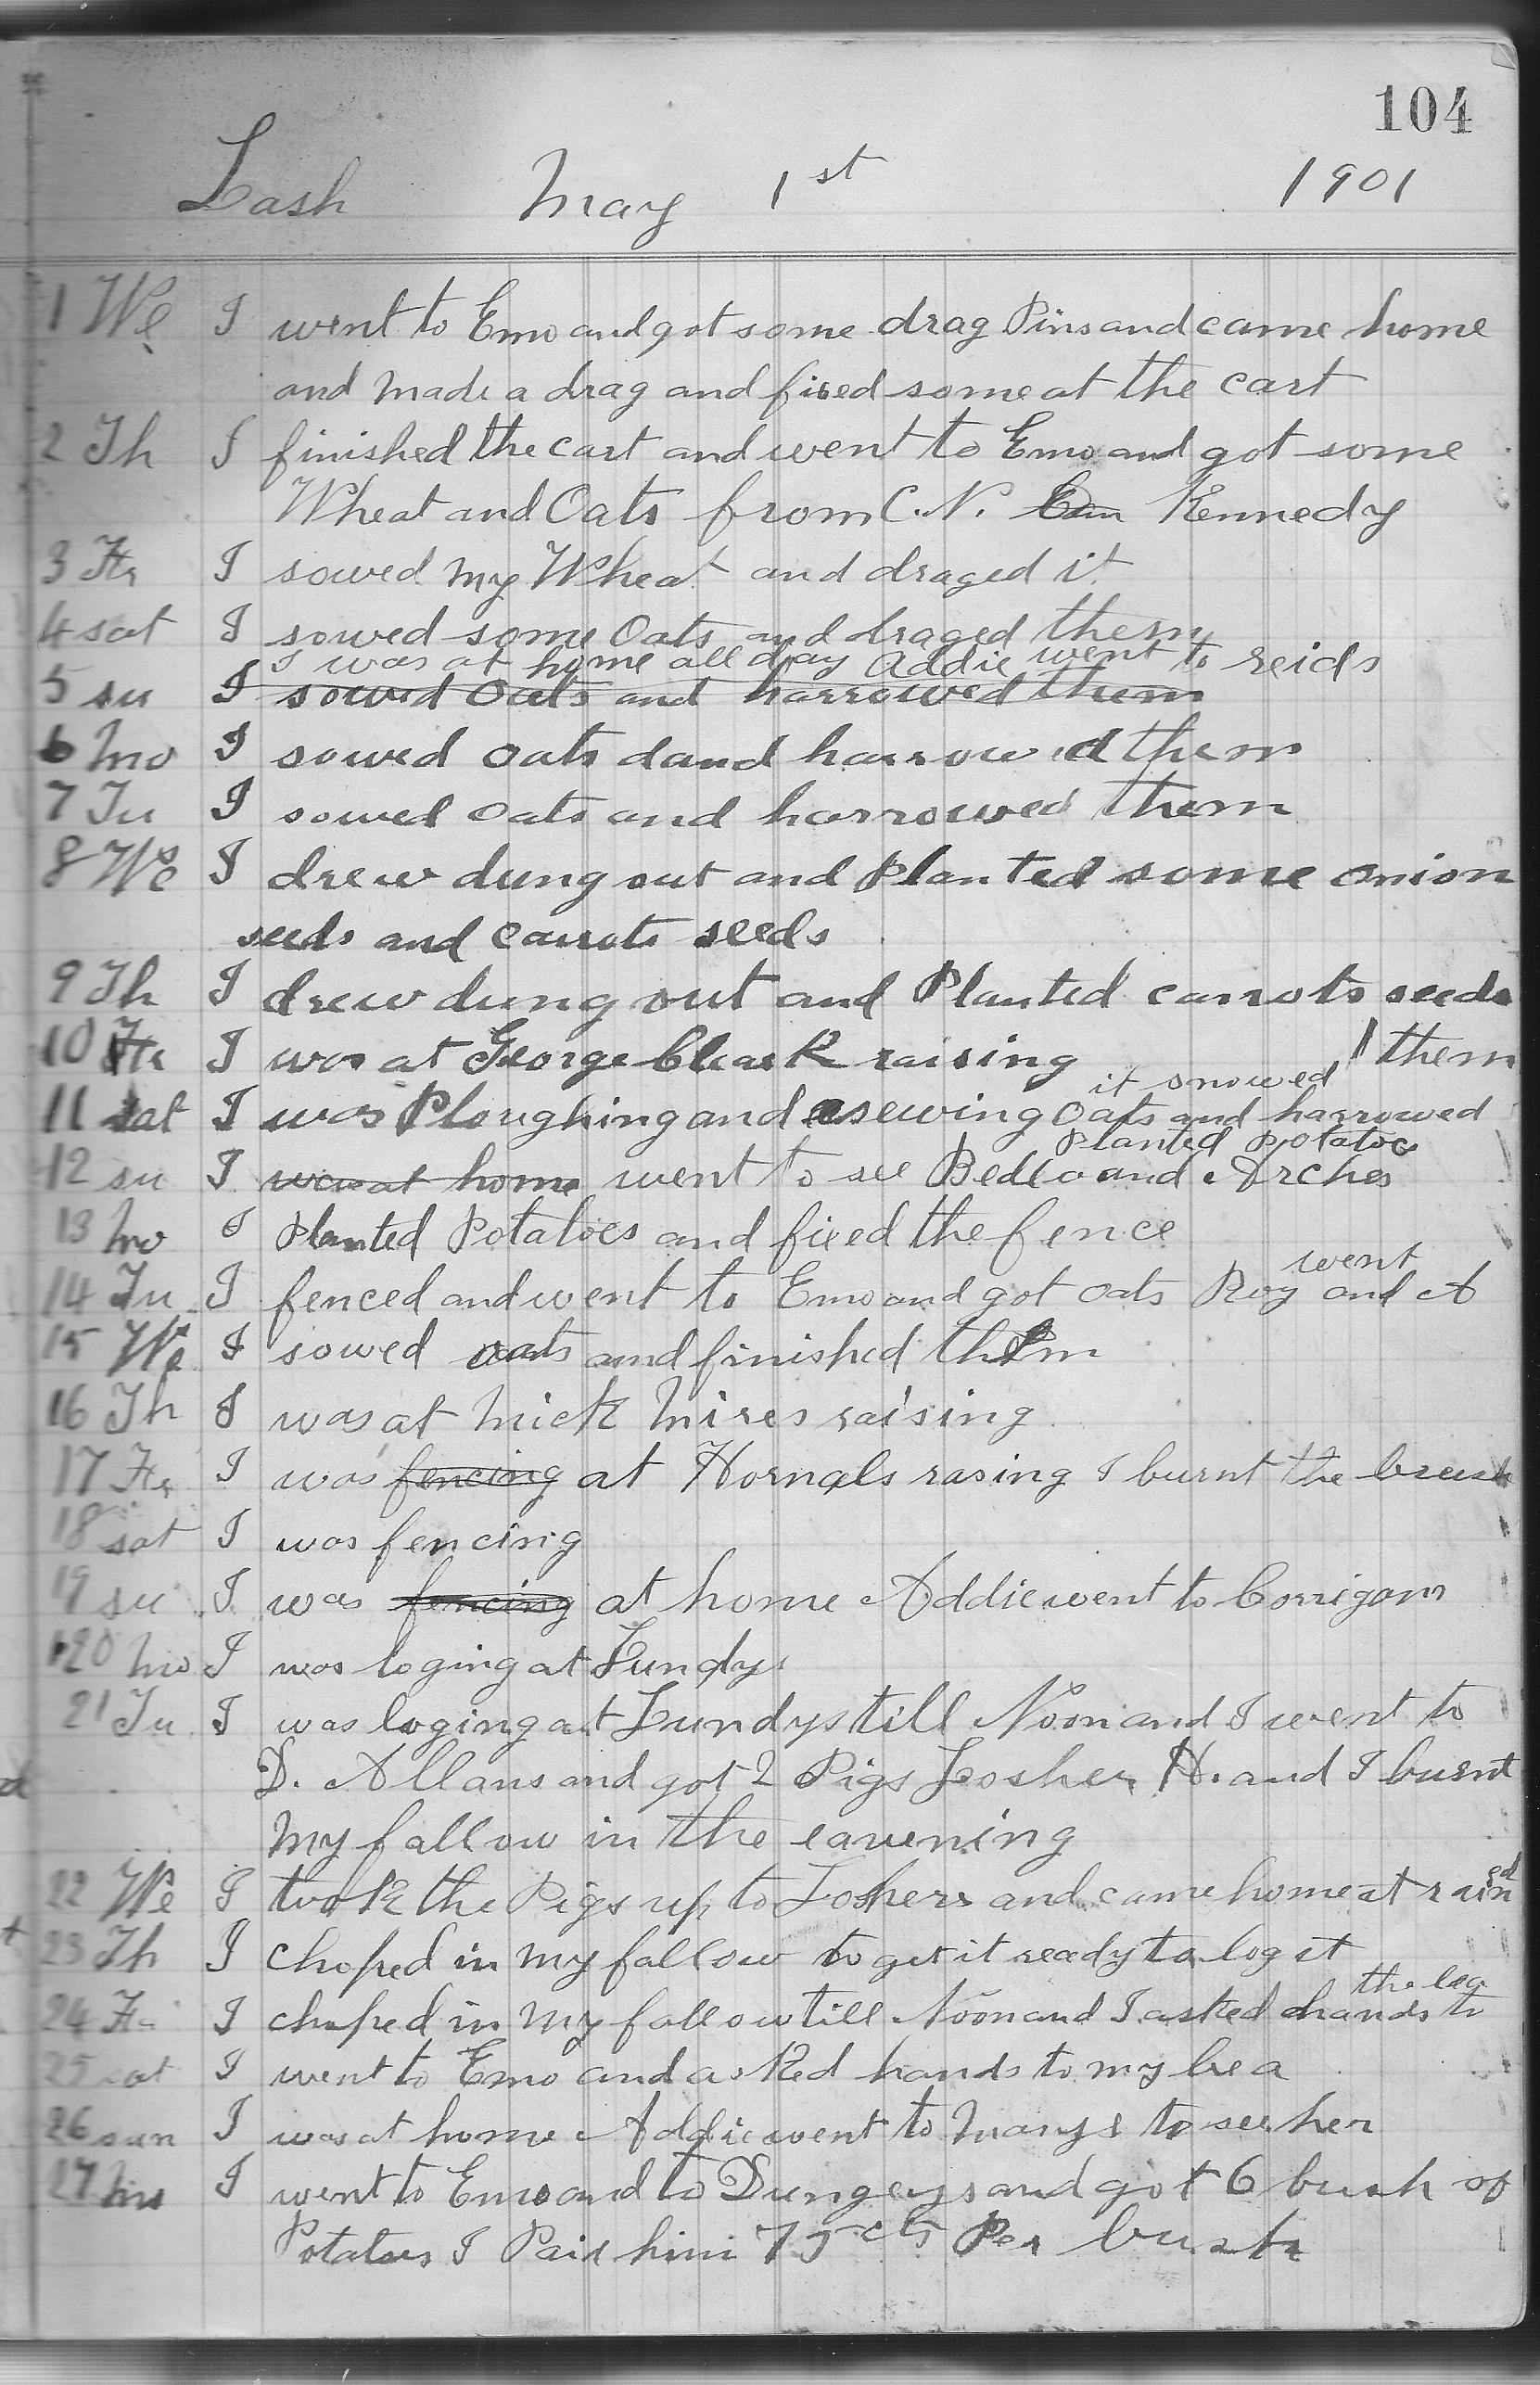 104
Lash May 1st 1901
1 We I went to Emo and got some drag Pins and came home
and made a drag and fixed some at the cart
2 Th I finished the cart and went to Emo and got some
Wheat and Oats from C. N. Kennedy
3 Fr I sowed my Wheat and draged it
4 sat I sowed some Oats and draged them
I was at home all day Addie went to reids
5 su I sowed oats and harrowed them
6 Mo I sowed oats dand harrowed them
7 Tu I sowed oats and harrowed them
8 We I drew dung out and Planted some onion
seeds and carrots seeds
9 Th I drew dung out and Planted carrots seeds
10 Fr I was at George Clark raising them
it snowed
11 sat I was Ploughing and sewing oats and harrowed
Planted Potatoe
12 su I was at home went to see Bedlo and Arches
13 Mo I Planted Potatoes and fixed the fence
went
14 Tu I fenced and went to Emo and got oats Roy and A
15 We I sowed oats and finished them
16 Th I was at Mick Mires raising
17 Fr I was fencing at Hornals rasing I burnt the brush
18 sat I was fencing
19 su I was fencing at home Addie went to Corrigans
20 Mo I was loging at Lundys
21 Tu I was loging at Lundys till Noon and I went to
D. Allans and got 2 Pigs Losher H. and I burnt
My fallow in the eavening
22 We I took the Pigs up to Loshers and came home at rained
23 Th I choped in my fallow to get it ready to log it
the bea
24 Fr I choped in My fallow till Noon and I asked hands to
25 sat I went to Emo and asked hands to my bea
26 sun I was at home Addie went to Marys to see her
27 Mo I went to Emo and to Dungeys and got 6 bush of
Potatoes I Paid him 75 cts Per bush